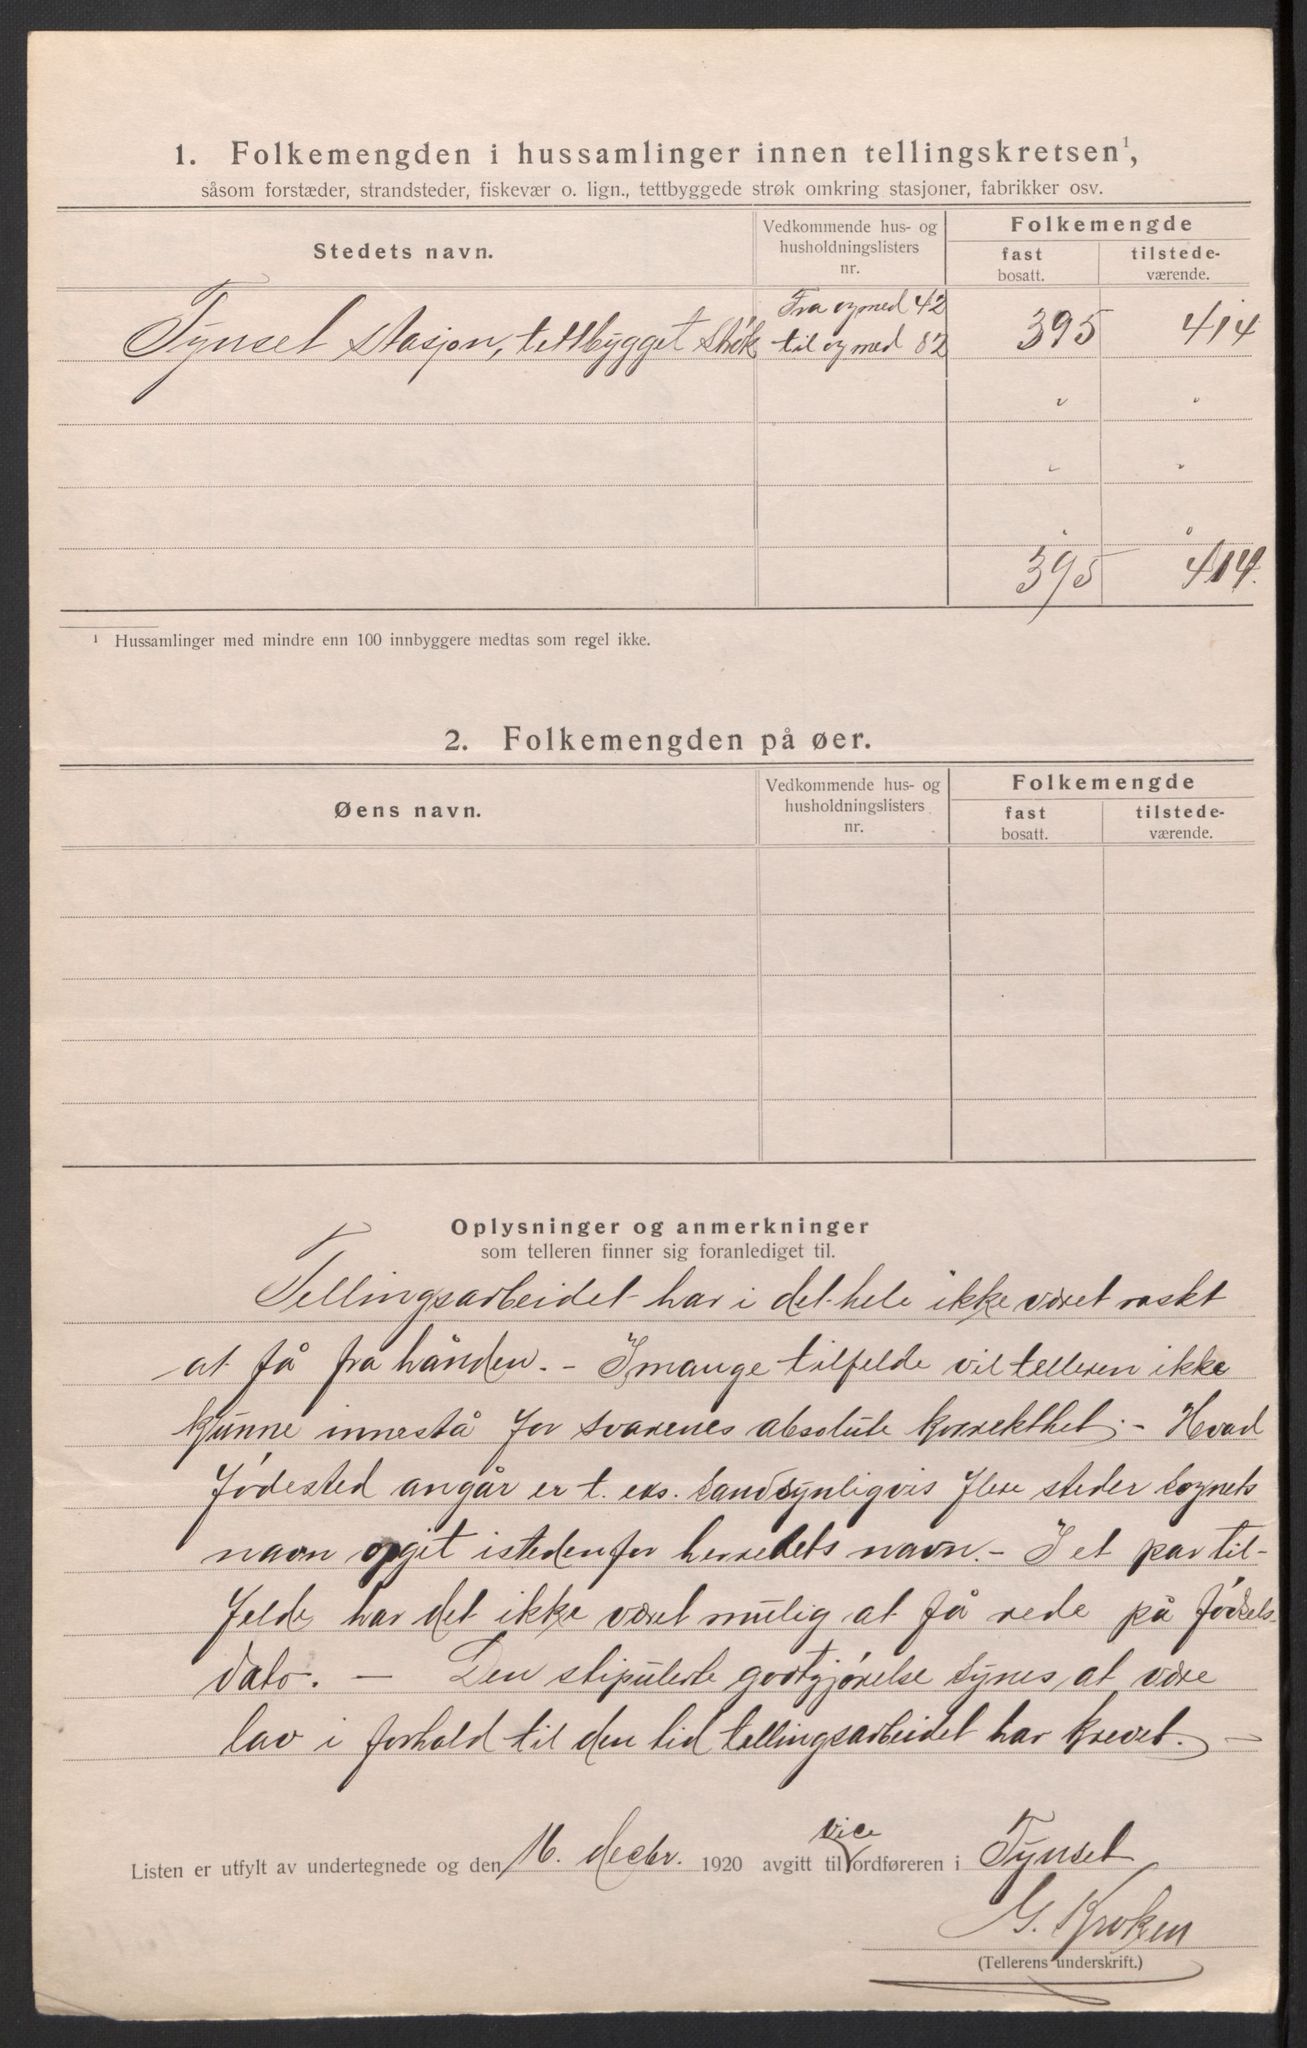 1. Folkemengden i hussamlinger innen tellingskretsen¹,
såsom forstæder, strandsteder, fiskevær o. lign., tettbyggede strøk omkring stasjoner, fabrikker osv.
Stedets navn.
Vedkommende hus- og
husholdningslisters
nr.
Folkemengde
fast
bosatt.
tilstede-
værende.
Tynset stasjon, tettbygget strøk
Fra og med 42
til og med 82
395
414
395
414.
¹ Hussamlinger med mindre enn 100 innbyggere medtas som regel ikke.
2. Folkemengden på øer.
Øens navn.
Vedkommende hus- og
husholdningslisters
nr.
Folkemengde
fast
bosatt.
tilstede-
værende.
Oplysninger og anmerkninger
som telleren finner sig foranlediget til.
Tellingsarbeidet har i det hele ikke været raskt
at få fra hånden. - I mange tilfelde vil telleren ikke
kunne innestå for svarenes absolute korrekthet. - Hvad
fødested angår er t. eks. sandsynligvis flere steder sognets
navn opgit istedenfor herredets navn. - I et par til-
felde har det ikke været mulig at få rede på fødsels-
dato. - Den stipulerte godtgjørelse synes at være
lav i forhold til den tid tellingsarbeidet har krevet. -
Listen er utfylt av undertegnede og den 16. decbr. 1920 avgitt til vice ordføreren i Tynset
G. Kroken
(Tellerens underskrift.)